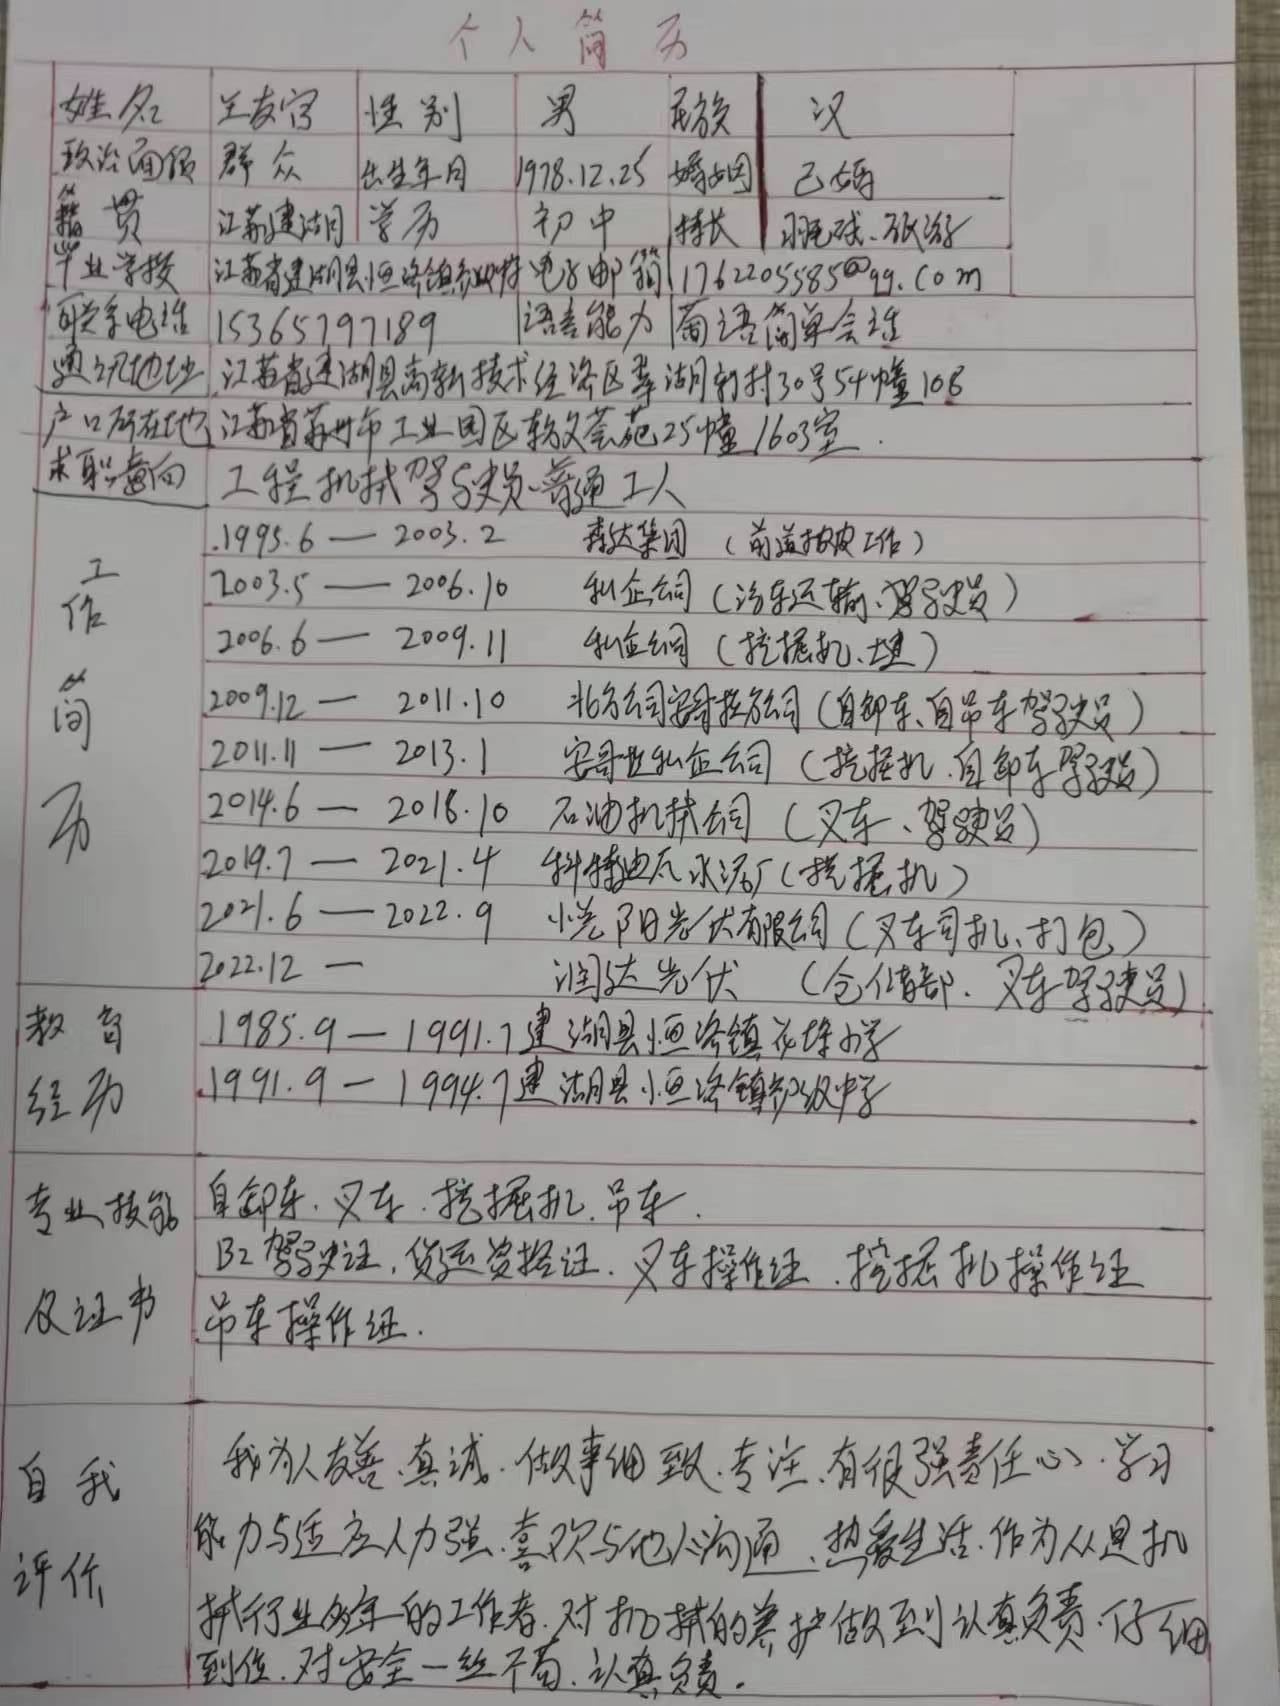 个人简历
姓名 王友富 性别 男 民族 汉
政治面貌 群众 出生年月 1978.12.25 婚姻 已婚
籍贯 江苏建湖 学历 初中 特长 羽毛球、旅游
毕业学校 江苏省建湖县恒济镇初级中 电子邮箱 1762205585@qq.com
联系电话 15365797189 语言能力 葡语简单会话
通讯地址 江苏省建湖县高新技术经济区 湖新村30号54幢108
户口所在地 江苏省苏州市工业园区 荟苑25幢1603室.
求职意向 工程机械驾驶员、普通工人
工作简历
.1995.6 — 2003.2 森达集团 (前道 工作)
2003.5 — 2006.10 私企公司 (汽车运输、驾驶员)
2006.6 — 2009.11 私企公司 (挖掘机、土建)
2009.12 — 2011.10 北方公司安哥拉分公司 (自卸车、自吊车驾驶员)
2011.11 — 2013.1 安哥拉私企公司 (挖掘机、自卸车驾驶员)
2014.6 — 2018.10 石油机械公司 (叉车、驾驶员)
2019.7 — 2021.4 科特迪瓦水泥厂 (挖掘机)
2021.6 — 2022.9 阳光伏有限公司 (叉车司机、打包)
2022.12 — 润达光伏 (仓储部、叉车驾驶员)
教育经历
.1985.9 — 1991.7 建湖县恒济镇 小学
.1991.9 — 1994.7 建湖县恒济镇初级中学
专业技能及证书
自卸车、叉车、挖掘机、吊车.
B2驾驶证、货运资格证、叉车操作证、挖掘机操作证
吊车操作证.
自我评价
我为人友善、真诚、做事细致、专注、有很强责任心、学习
能力与适应人力强、喜欢与他人沟通、热爱生活、作为从是机
械行业多年的工作者、对机械的养护做到认真负责、仔细
到位、对安全一丝不苟、认真负责.